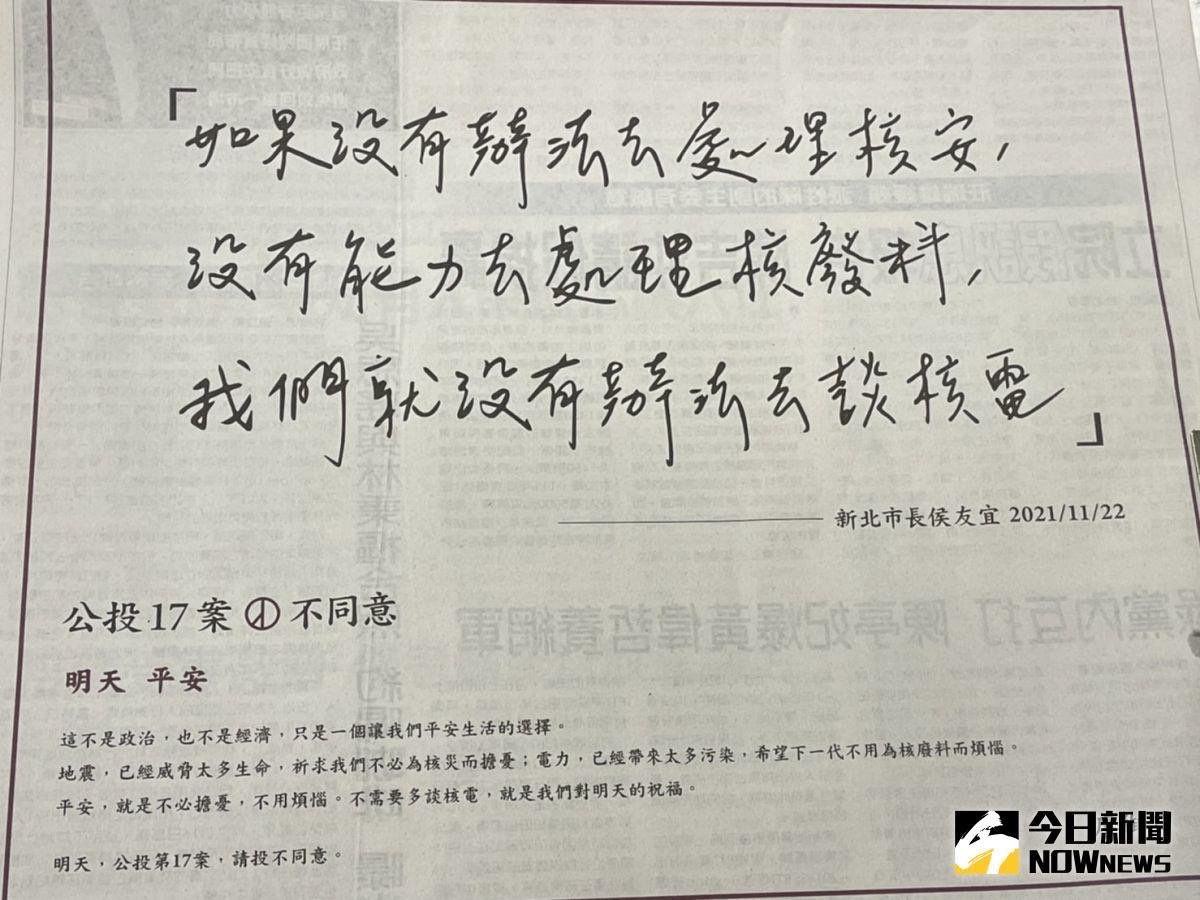 「如果没有辦法去處理核安，
没有能力去處理核廢料，
我們就没有辦法去談核電」
新北市長侯友宜 2021/11/22
公投 17 案 不同意
明天 平安
這不是政治，也不是經濟，只是一個讓我們平安生活的選擇。
地震，已經威脅太多生命，祈求我們不必為核災而擔憂；電力，已經帶來太多污染，希望下一代不用為核廢料而煩惱。
平安，就是不必擔憂，不用煩惱。不需要多談核電，就是我們對明天的祝福。
明天，公投第17案，請投不同意。
今日新聞
NOWNEWS